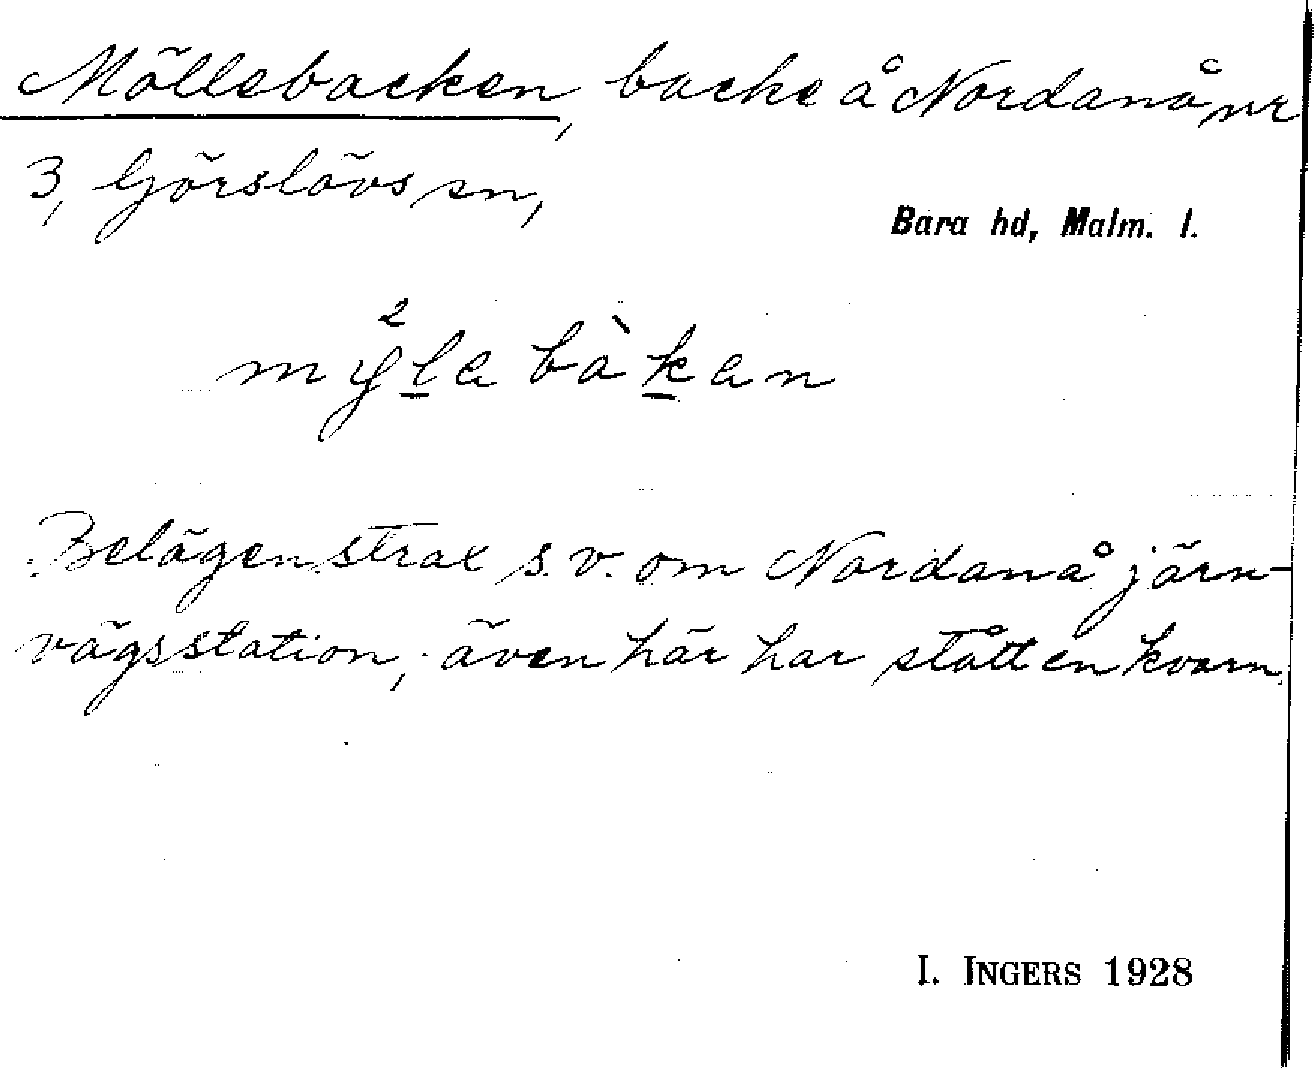 Möllebacken, backe å Nordanå nr
3, Görslövs sn,
Bara hd, Malm. l.
Belägen strax s.v. om Nordanå järn-
vägsstation, även här har stått en kvarn.
I. INGERS 1928